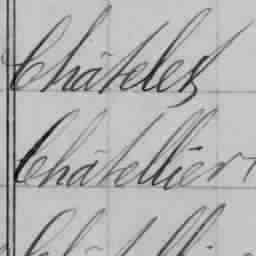 Châtelet
Châtellier